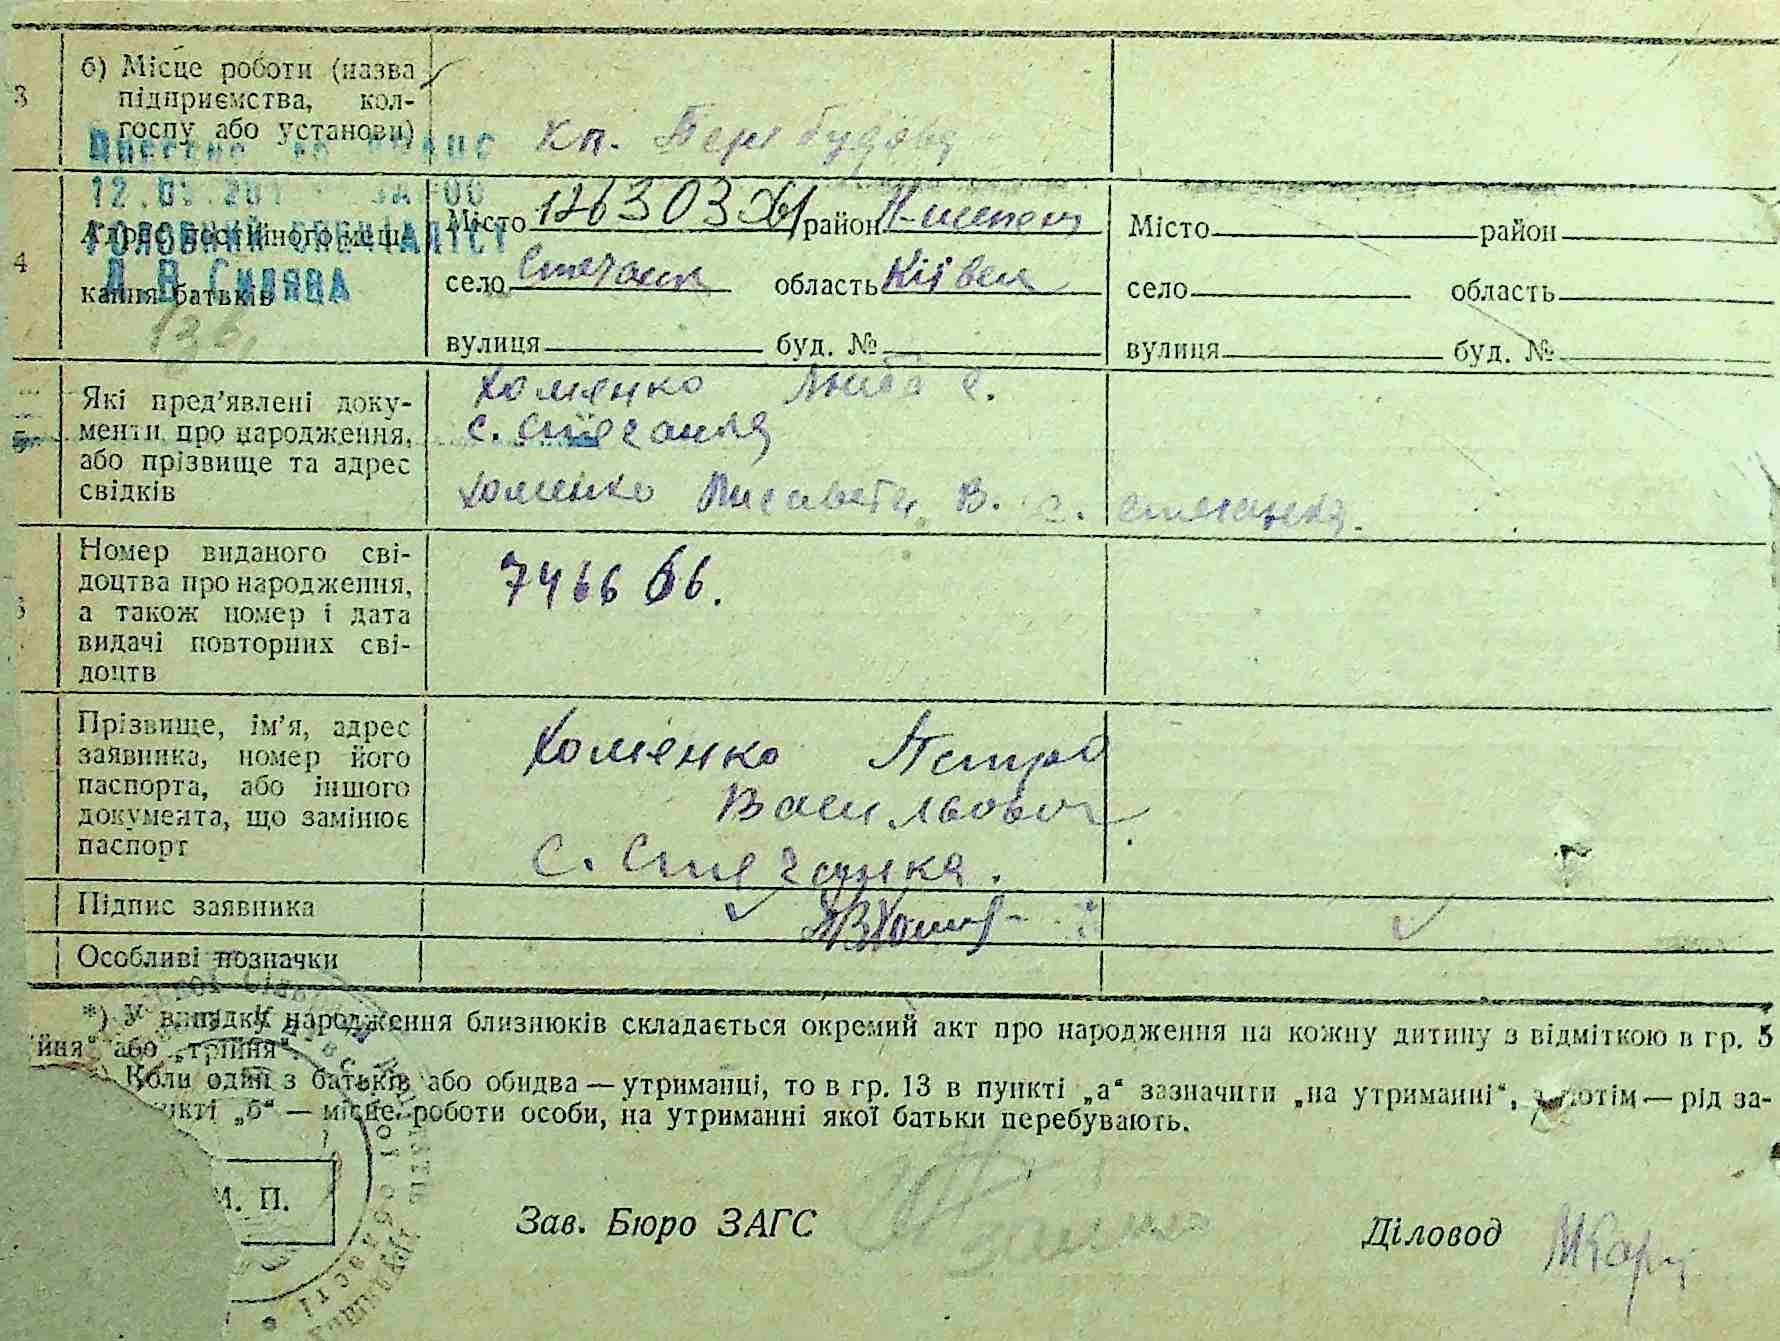 3 б) Місце роботи (назва
підприємства, кол-
госпу або установи)
кп. Перебудова
12.0
ГОЛОВНИЙ СПЕЦІАЛІСТ
4 Адрес постійного меш-
кання батьків
Місто 126303 район
село Стечанка область Київськ
вулиця буд. №
Місто район
село область
вулиця буд. №
5 Які пред’явлені доку-
менти про народження,
або прізвище та адрес
свідків
Хоменко Люба
с. Стечанка
Хоменко Лисавета В. с. Стечанка.
Номер виданого сві-
доцтва про народження,
а також номер і дата
видачі повторних сві-
доцтв
746666.
Прізвище, ім’я, адрес
заявника, номер його
паспорта, або іншого
документа, що замінює
паспорт
Хоменко Петро
Васильович
с. Стечанка.
Підпис заявника
Особливі позначки
*) У випадку народження близнюків складається окремий акт про народження на кожну дитину з відміткою в гр. 5
йня“ або „трійня“.
Коли один з батьків або обидва — утриманці, то в гр. 13 в пункті „а“ зазначити „на утриманні“, а потім — рід за-
ункті „б“ — місце роботи особи, на утриманні якої батьки перебувають.
М. П.
Зав. Бюро ЗАГС
Діловод